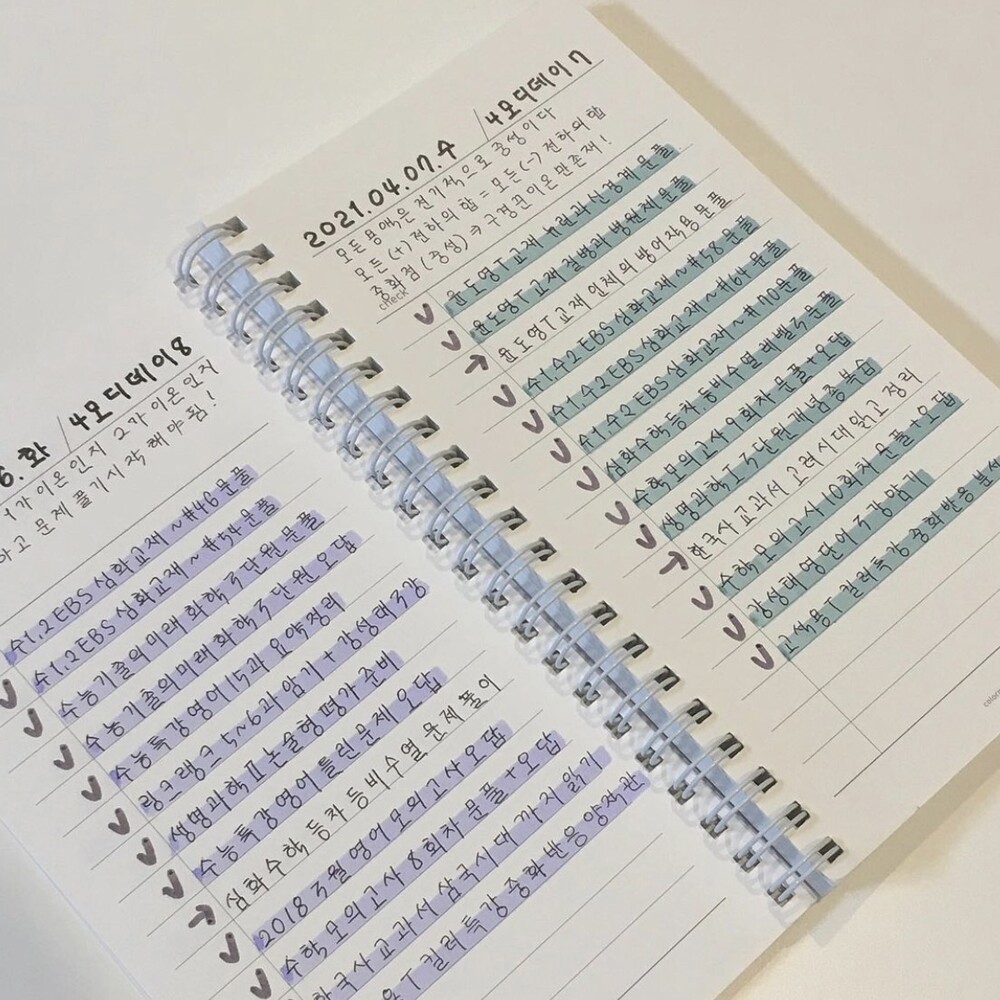 6.화 /4모디데이8
1가이온인지 2가이온인지
하고 문제풀기시작해야됨!
수1,2EBS심화교재~#46문풀
수1,2EBS심화교재~#54문풀
수능기출의미래화학3단원문풀
수능기출의미래화학3단원오답
수능특강영어15과요약정리
링크랭크5~6과암기+강성태3강
생명과학II논술형평가준비
수능특강영어틀린문제오답
심화수학등차등비수열문제풀이
2018 3월영어모의고사오답
수학모의고사8회차문풀+오답
한국사교과서삼국시대까지읽기
용T킬러특강중화반응양적관
2021.04.07.수 /4모디데이7
모든용액은전기적으로중성이다
모든(+)전하의합=모든(-)전하의합
중화점(중성)→구경꾼이온만존재!
check
윤도영T교재 뉴런과신경계문풀
윤도영T교재 질병과병원체문풀
윤도영T교재 인체의방어작용문풀
수1,2EBS심화교재~#58문풀
수1,2EBS심화교재~#64문풀
수1,2EBS심화교재~#70문풀
심화수학등차,등비수열레벨3문풀
수학모의고사9회차문풀+오답
생명과학I3단원개념중복습
한국사교과서고려시대읽고정리
수학모의고사10회차문풀+오답
강성태영단어3강암기
고석용T킬러특강중화반응분석